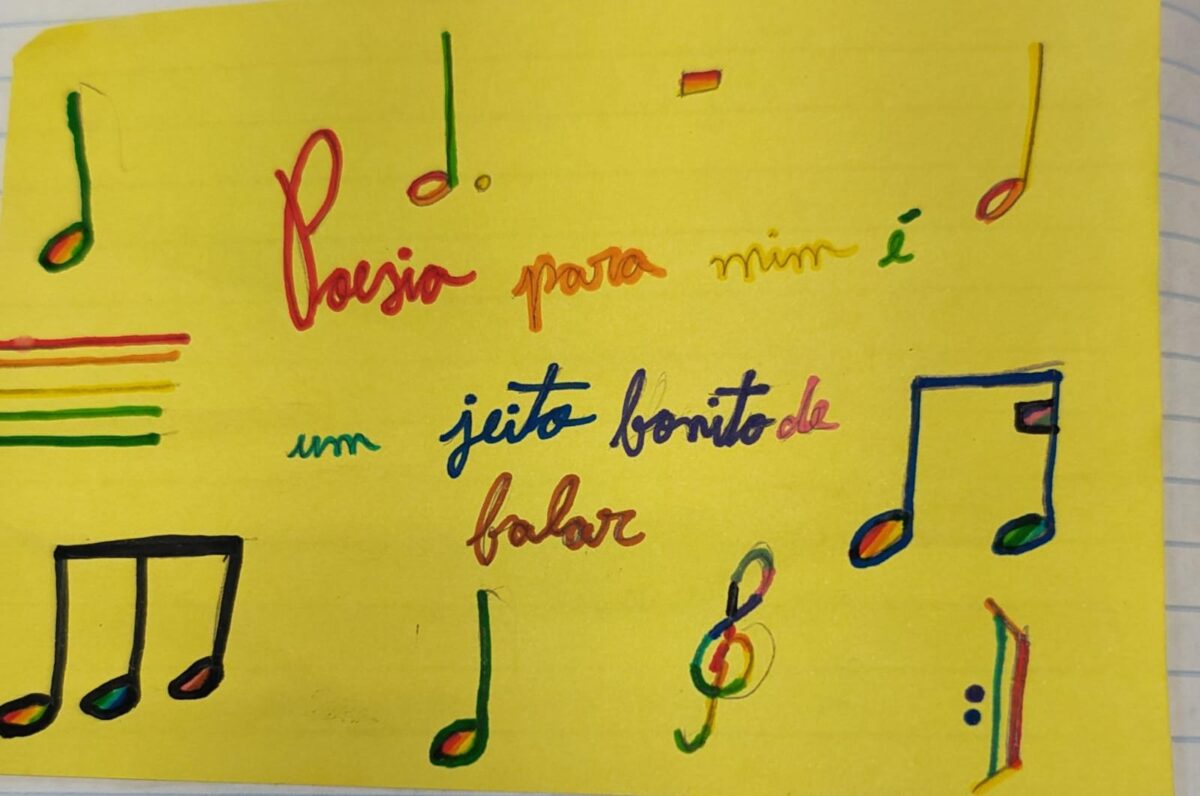 Poesia para mim é
um jeito bonito de
falar